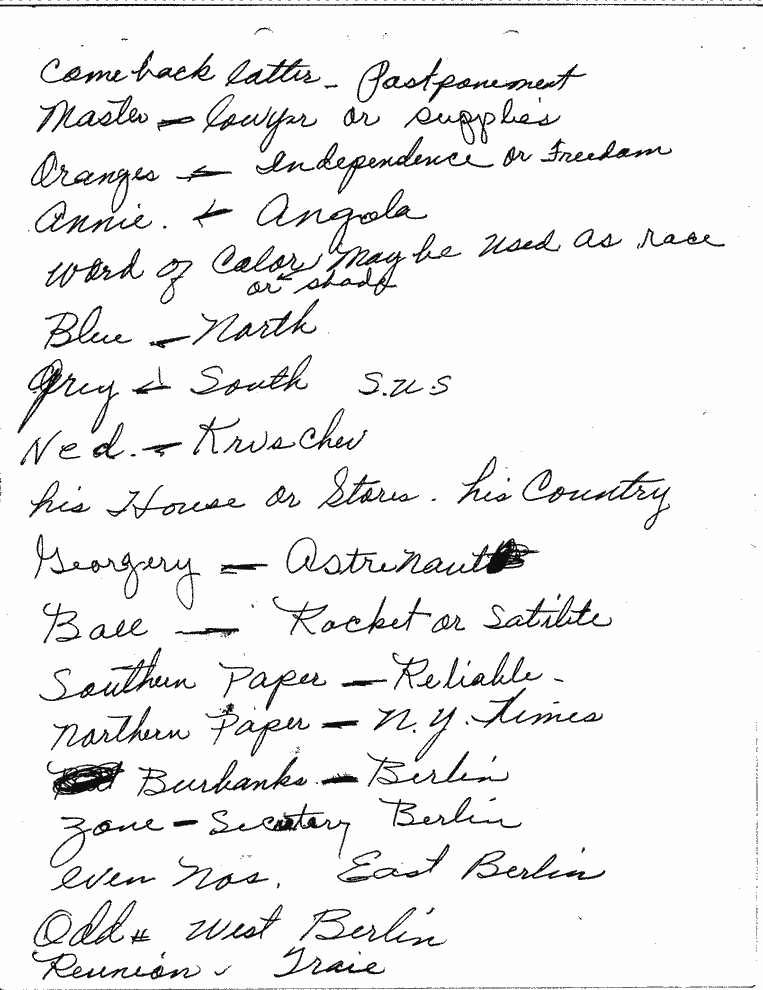 Come back latter - Postponement
Master - lowyer or supplies
Oranges - Independence or Freedom
Annie. - Angola
Word of Color May be used as race
or shade
Blue - North
Grey - South S.U.S
Ned. - Kruschev
his House or Stores. his Country
Georgery - Astronaut
Ball - Rocket or Satilite
Southern Paper - Reliable -
Northern Paper - N.Y. Times
Burbanks - Berlin
Zone - Berlin
even Nos. East Berlin
Odd # West Berlin
Reunion -